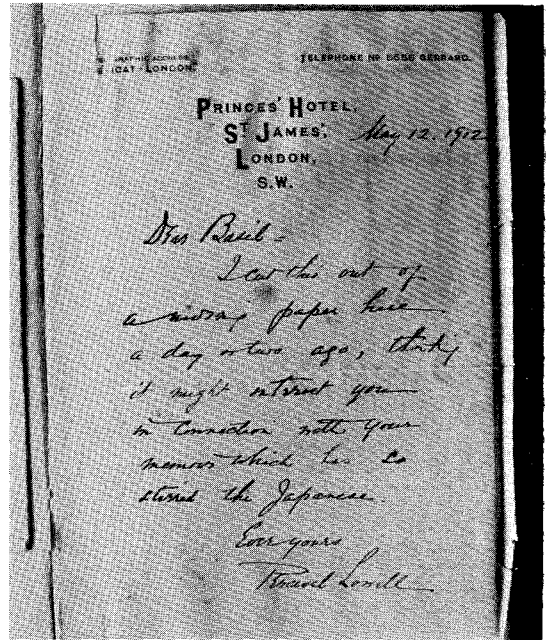 ICAT-LONDON.
TELEPHONE Nº 5566 GERRARD.
PRINCES' HOTEL,
ST JAMES',
LONDON,
S.W.
May 12, 1912
Dear Basil -
I cut this out of
a morning paper here
a day or two ago, thinking
it might interest you
in connection with your
memoir which has so
stirred the Japanese.
Ever yours
Percival Lowell